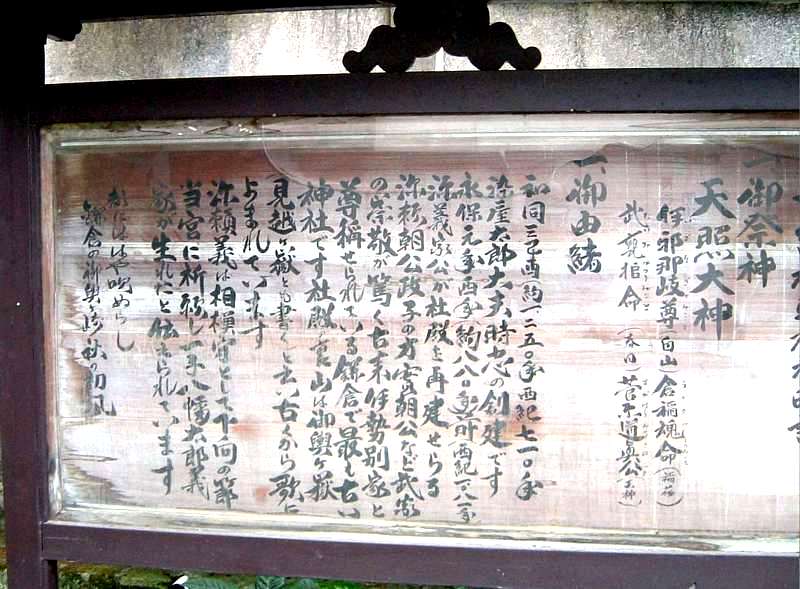 一、御祭神
天照大神
伊邪那岐尊(白山)倉稲魂命(稲荷)
武甕槌命(春日)菅原道真公(天神)
一、御由緒
和同三己酉約一二五〇年西紀七一〇年
染屋太郎大夫時忠の創建です
永保元年酉年約八八〇年前(西紀一〇八一年
源義家公が社殿を再建せらる
源頼朝公政子の方実朝公など武家
の崇敬が篤く古来伊勢別家と
尊称せられている鎌倉で最も古い
神社です社殿の裏山は御輿ヶ嶽
(見越ヶ嶽とも書く)と云い古くから歌に
よまれています
源頼義は相模守として下向の節
当宮に祈願し一子八幡太郎義
家が生れたと伝えられています
都にははや吹ぬらし
鎌倉の御輿ヶ崎秋の初風